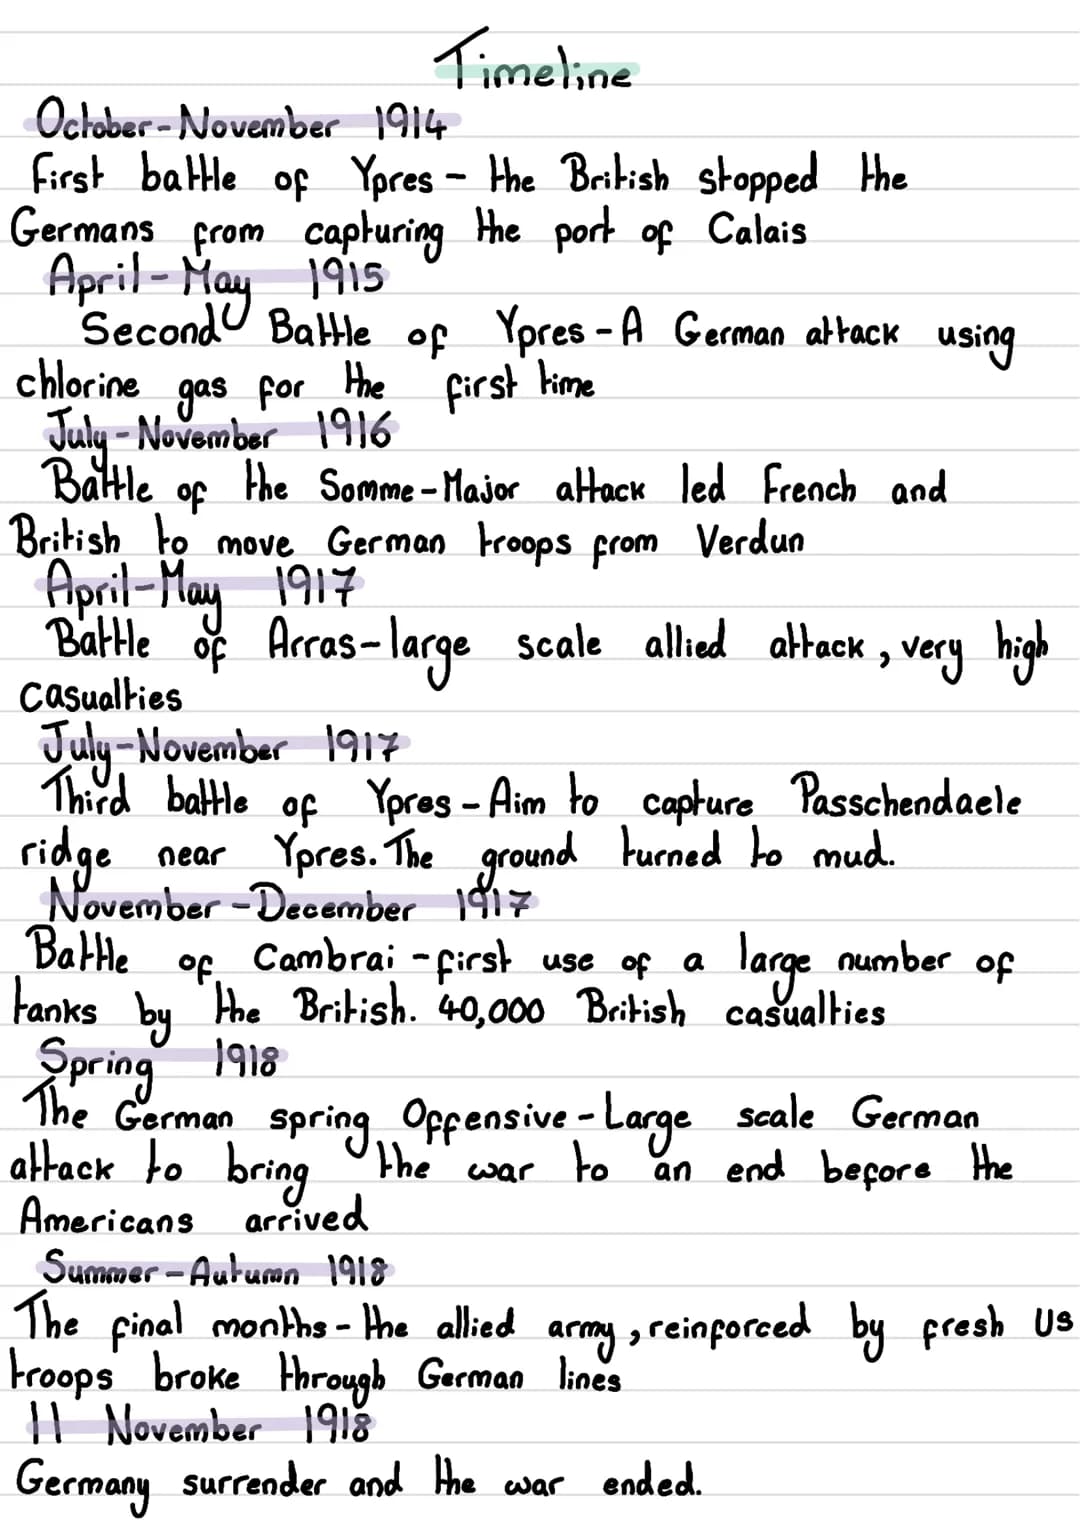 Timeline
October-November 1914
First battle of Ypres - the British stopped the
Germans from capturing the port of Calais
April-May 1915
Second Battle of Ypres - A German attack using
chlorine gas for the first time
July-November 1916
Battle of the Somme - Major attack led French and
British to move German troops from Verdun
April-May 1917
Battle of Arras - large scale allied attack, very high
casualties
July-November 1917
Third battle of Ypres - Aim to capture Passchendaele
ridge near Ypres. The ground turned to mud.
November-December 1917
Battle of Cambrai - first use of a large number of
tanks by the British. 40,000 British casualties
Spring 1918
The German spring Offensive - Large scale German
attack to bring the war to an end before the
Americans arrived
Summer-Autumn 1918
The final months - the allied army, reinforced by fresh US
troops broke through German lines
11 November 1918
Germany surrender and the war ended.